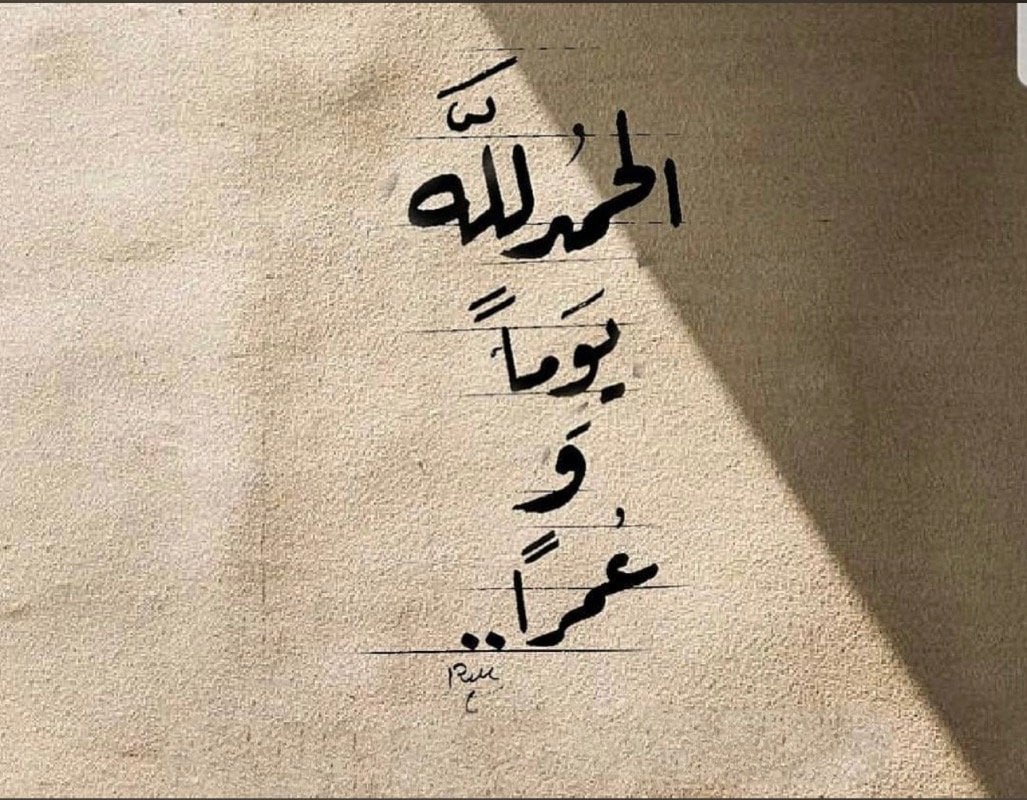 الحمُدللَّه
يَوَماً
وَ
عُمراً..